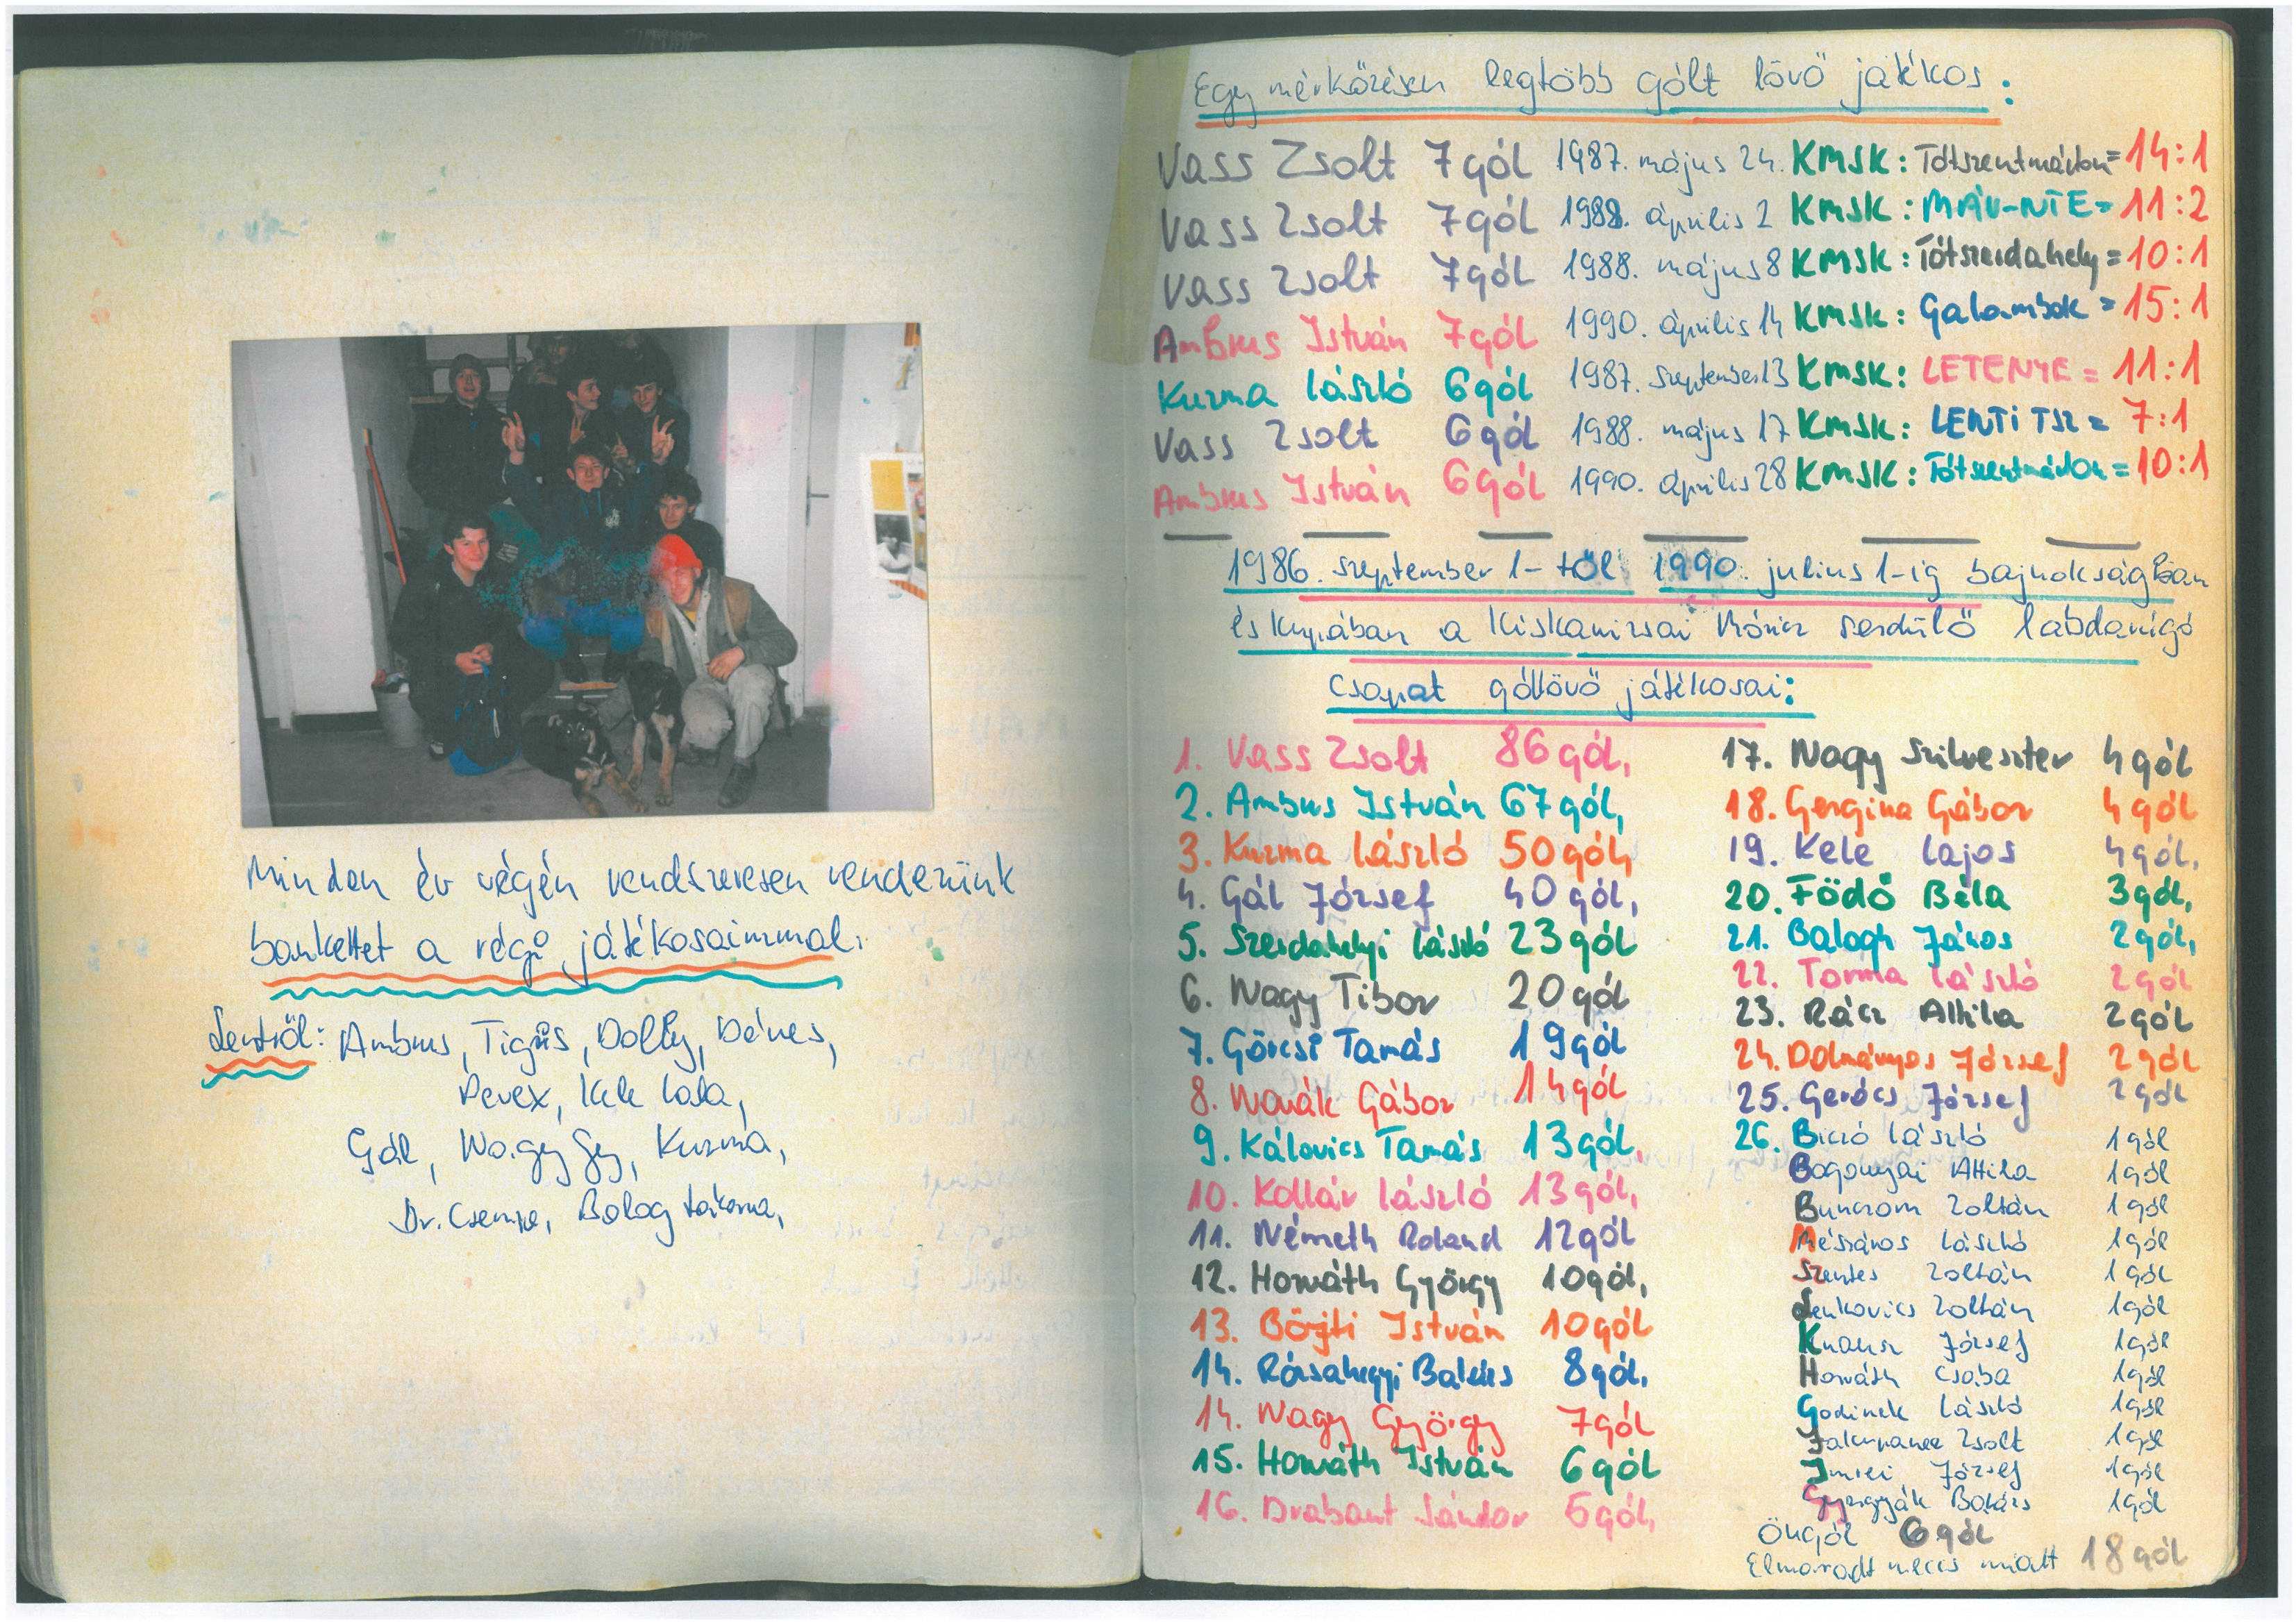 Minden év végén rendszeresen rendezünk
bankettet a régi játékosaimmal.
Fentről: Ambrus, Tigris, Dolly, Dénes,
Perex, Kele Lala,
Gál, Nagy Gy, Kuzma,
Dr. Csemre, Balog
Egy mérkőzésen legtöbb gólt lövő játékos:
Vass Zsolt 7 gól 1987. május 24. KMSK: Tótszentmárton = 14:1
Vass Zsolt 7 gól 1988. április 2 KMSK: MÁV-NTE = 11:2
Vass Zsolt 7 gól 1988. május 8 KMSK: Tótszerdahely = 10:1
Ambrus István 7 gól 1990. április 14 KMSK: Galambok = 15:1
Kuzma László 6 gól 1987. szeptember 13 KMSK: LETENYE = 11:1
Vass Zsolt 6 gól 1988. május 17 KMSK: LENTI TSZ = 7:1
Ambrus István 6 gól 1990. április 28 KMSK: Tótszentmárton = 10:1
1986. szeptember 1-től 1990. julius 1-ig bajnokságban
és kupában a Kiskanizsai Móricz serdülő labdarúgó
csapat góllövő játékosai:
1. Vass Zsolt 86 gól,
2. Ambrus István 67 gól,
3. Kuzma László 50 gól,
4. Gál József 40 gól,
5. Szerdahelyi László 23 gól
6. Nagy Tibor 20 gól
7. Göcsi Tamás 19 gól
8. Novák Gábor 14 gól
9. Kálovics Tamás 13 gól,
10. Kollár László 13 gól,
11. Németh Roland 12 gól
12. Horváth György 10 gól,
13. Böjti István 10 gól
14. Rózsahegyi Balázs 8 gól,
14. Nagy György 7 gól
15. Horváth István 6 gól
16. Drabant Sándor 5 gól,
17. Nagy Szilveszter 4 gól
18. Gergina Gábor 4 gól
19. Kele Lajos 4 gól,
20. Födő Béla 3 gól,
21. Balogh János 2 gól,
22. Torma László 2 gól
23. Rácz Attila 2 gól
24. Dolmányos József 2 gól
25. Gerócs József 2 gól
26. Biczó László 1 gól
Bogonyai Attila 1 gól
Bunczom Zoltán 1 gól
Mészáros László 1 gól
Szentes Zoltán 1 gól
Lenkovics Zoltán 1 gól
Knausz József 1 gól
Horváth Csaba 1 gól
Godinek László 1 gól
Zsolt 1 gól
Imrei József 1 gól
Gyergyák Balázs 1 gól
Öngól 6 gól
Elmaradt meccs miatt 18 gól